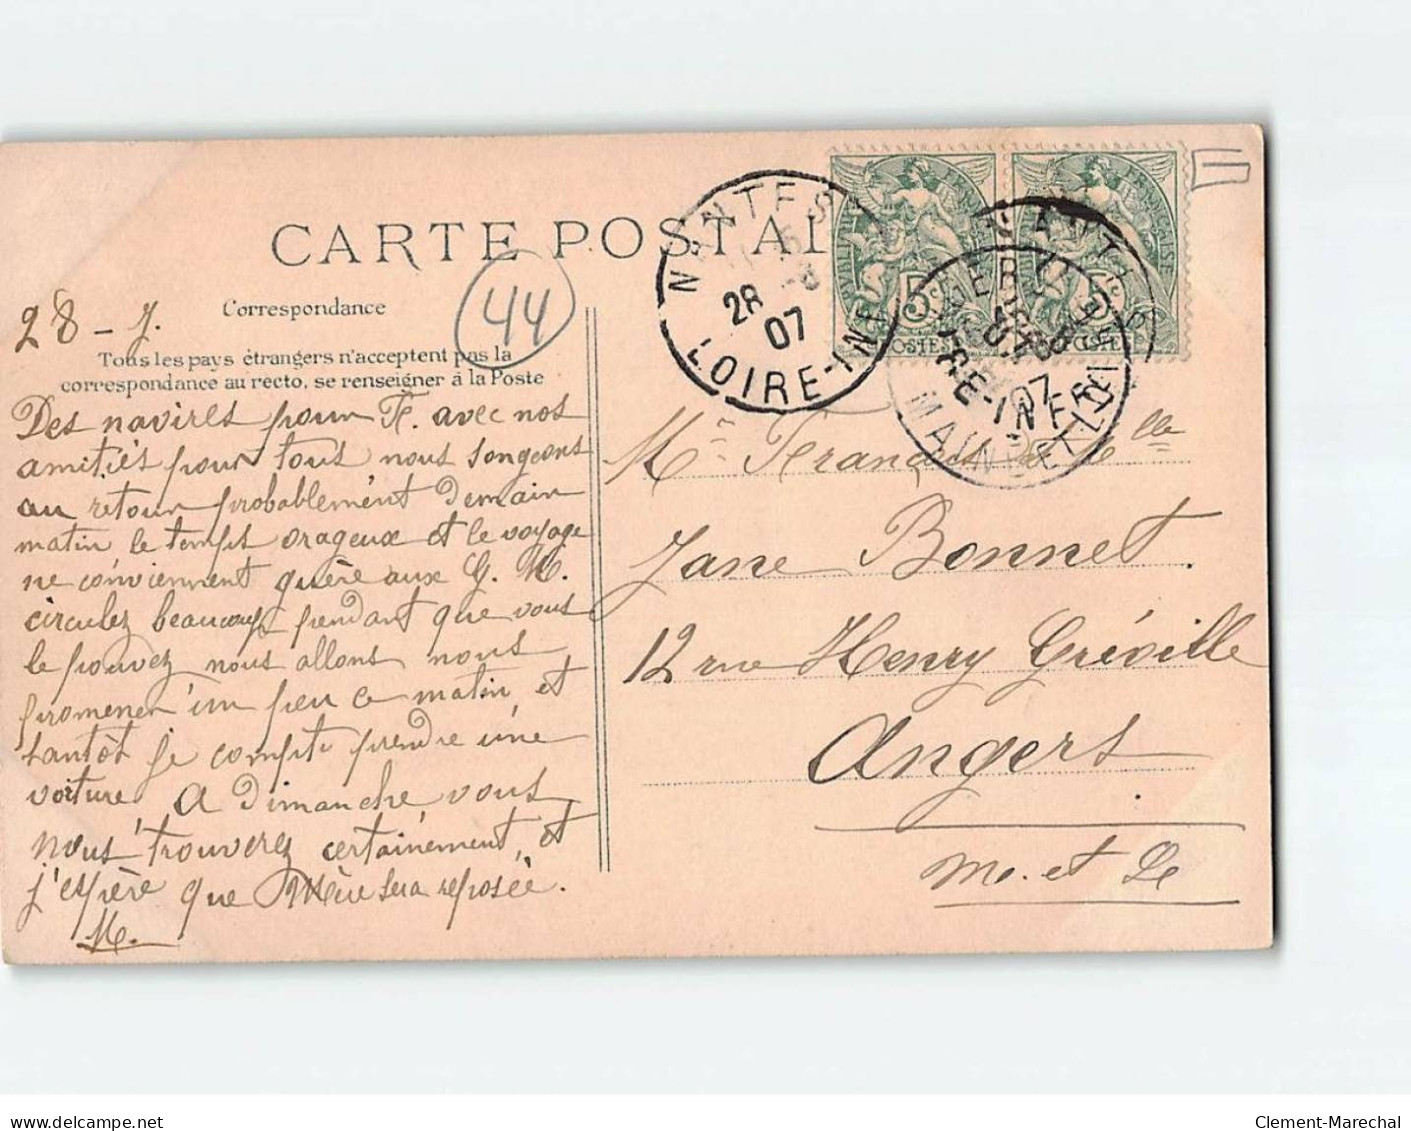 CARTE POSTAL
NANTES
28 -8
07
LOIRE-INF
MAINE-ET-L
07
RE-INF
5
POSTES
44
28 - 7.
Correspondance
Tous les pays étrangers n'acceptent pas la
correspondance au recto, se renseigner à la Poste
Des navires pour F. avec nos
amitiés pour tous nous songeons
au retour probablement demain
matin le temps orageux et le voyage
ne conviennent guère aux G. M.
circulez beaucoup pendant que vous
le pouvez nous allons nous
promener un peu ce matin, et
tantôt je compte prendre une
voiture. A dimanche vous
nous trouverez certainement, et
j'espère que Mère sera reposée.
M.
Mr François et Melle
Jane Bonnet.
12 rue Henry Gréville
Angers
M. et Le
delcampe.net
Clement-Marechal